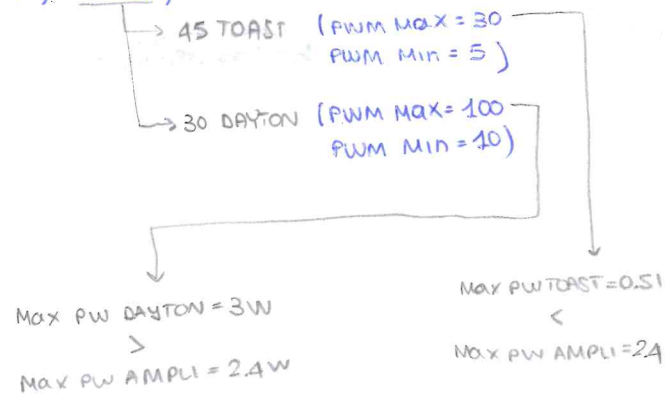 45 TOAST (PWM Max = 30
PWM Min = 5)
30 DAYTON (PWM Max = 100
PWM Min = 10)
Max PW DAYTON = 3W
>
Max PW AMPLI = 2.4W
Max PW TOAST = 0.51
<
Max PW AMPLI = 2.4